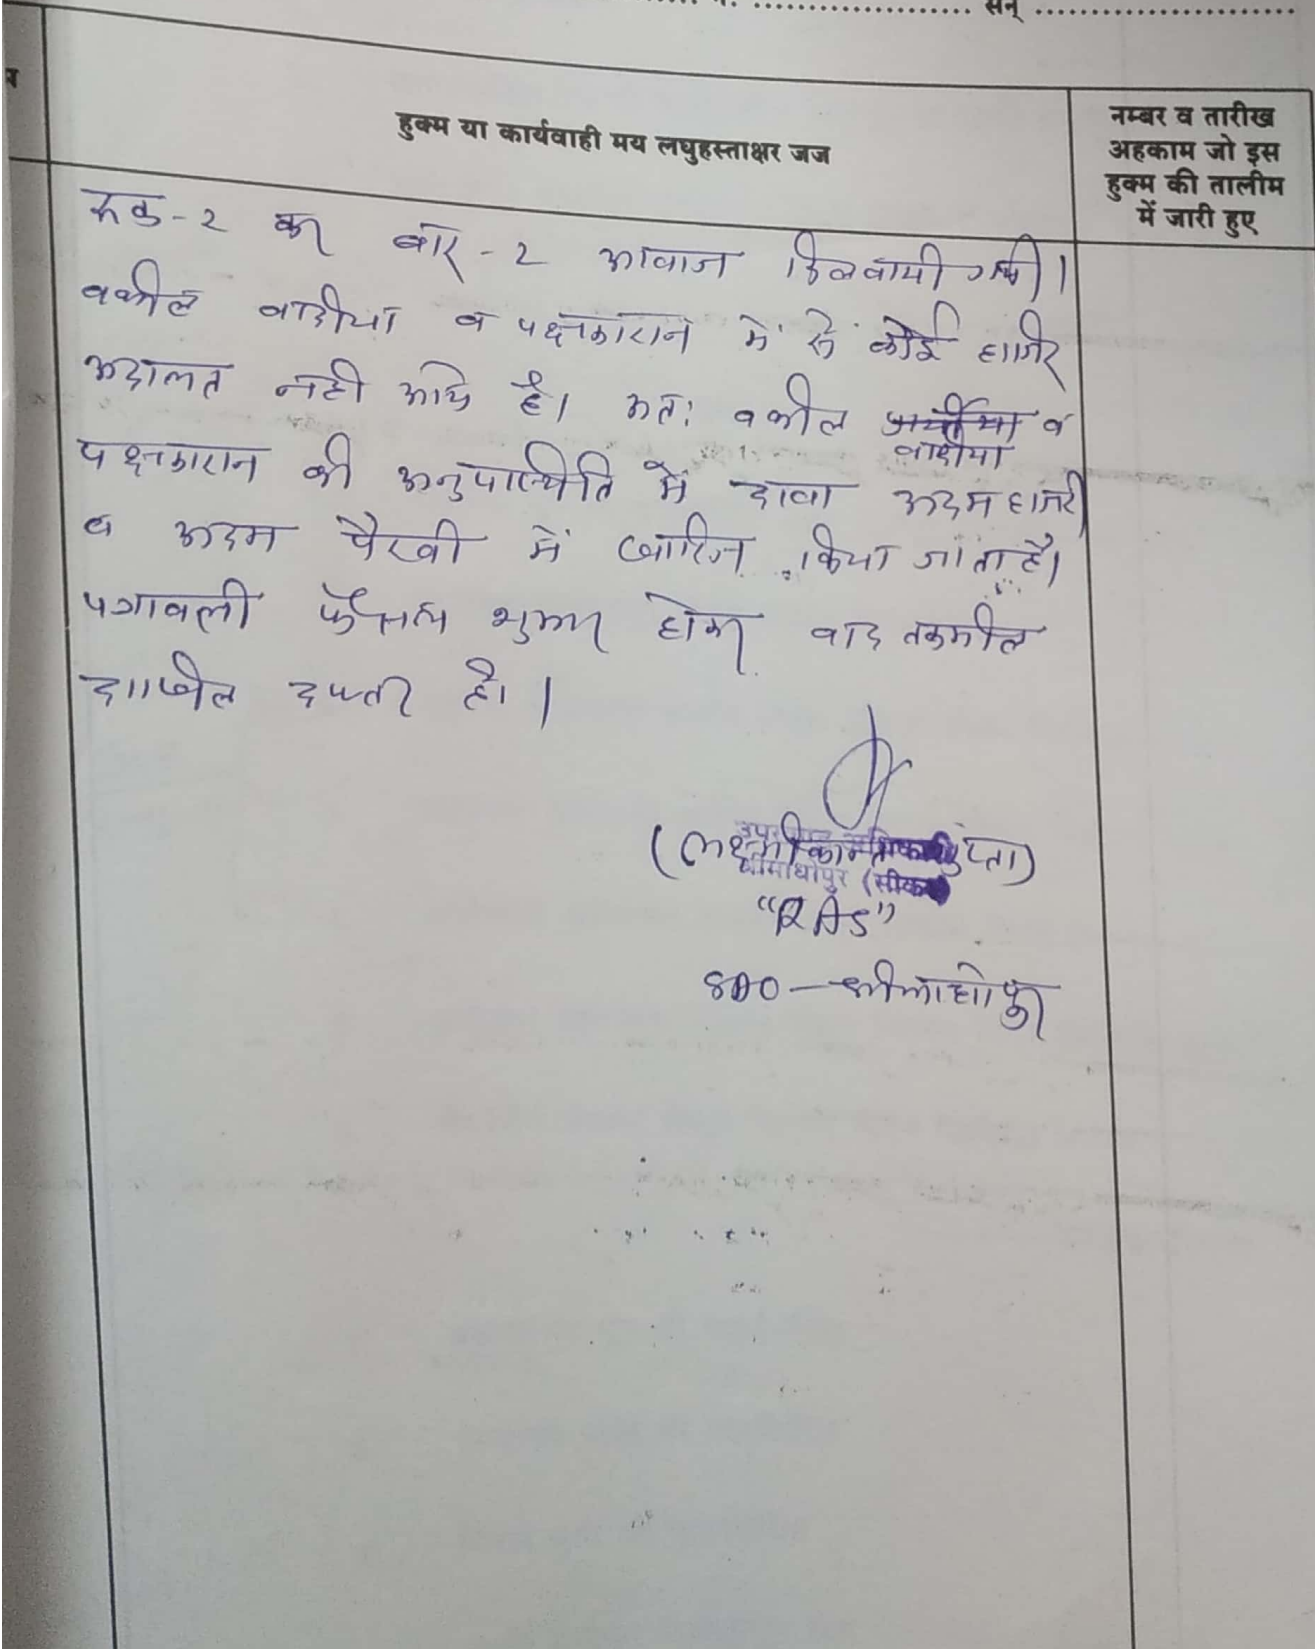 सन्
हुक्म या कार्यवाही मय लघुहस्ताक्षर जज
नम्बर व तारीख
अहकाम जो इस
हुक्म की तालीम
में जारी हुए
रूक-२ कर बार-२ आवाज दिलवायी गयी।
वकील वादीया व पक्षकारान में से कोई हाजिर
अदालत नही आये है। अतः वकील प्रार्थीया व
वादीया
पक्षकारान की अनुपस्थिति में दावा अदम हाजरी
व अदम पैरवी में खारिज किया जाता है।
पत्रावली फैसल शुमार होकर बाद तकमील
दाखिल दफ्तर हो।
(लक्ष्मीकान्त गुप्ता)
श्रीमाधोपुर (सीकर)
"RAS"
SDO - श्रीमाधोपुर